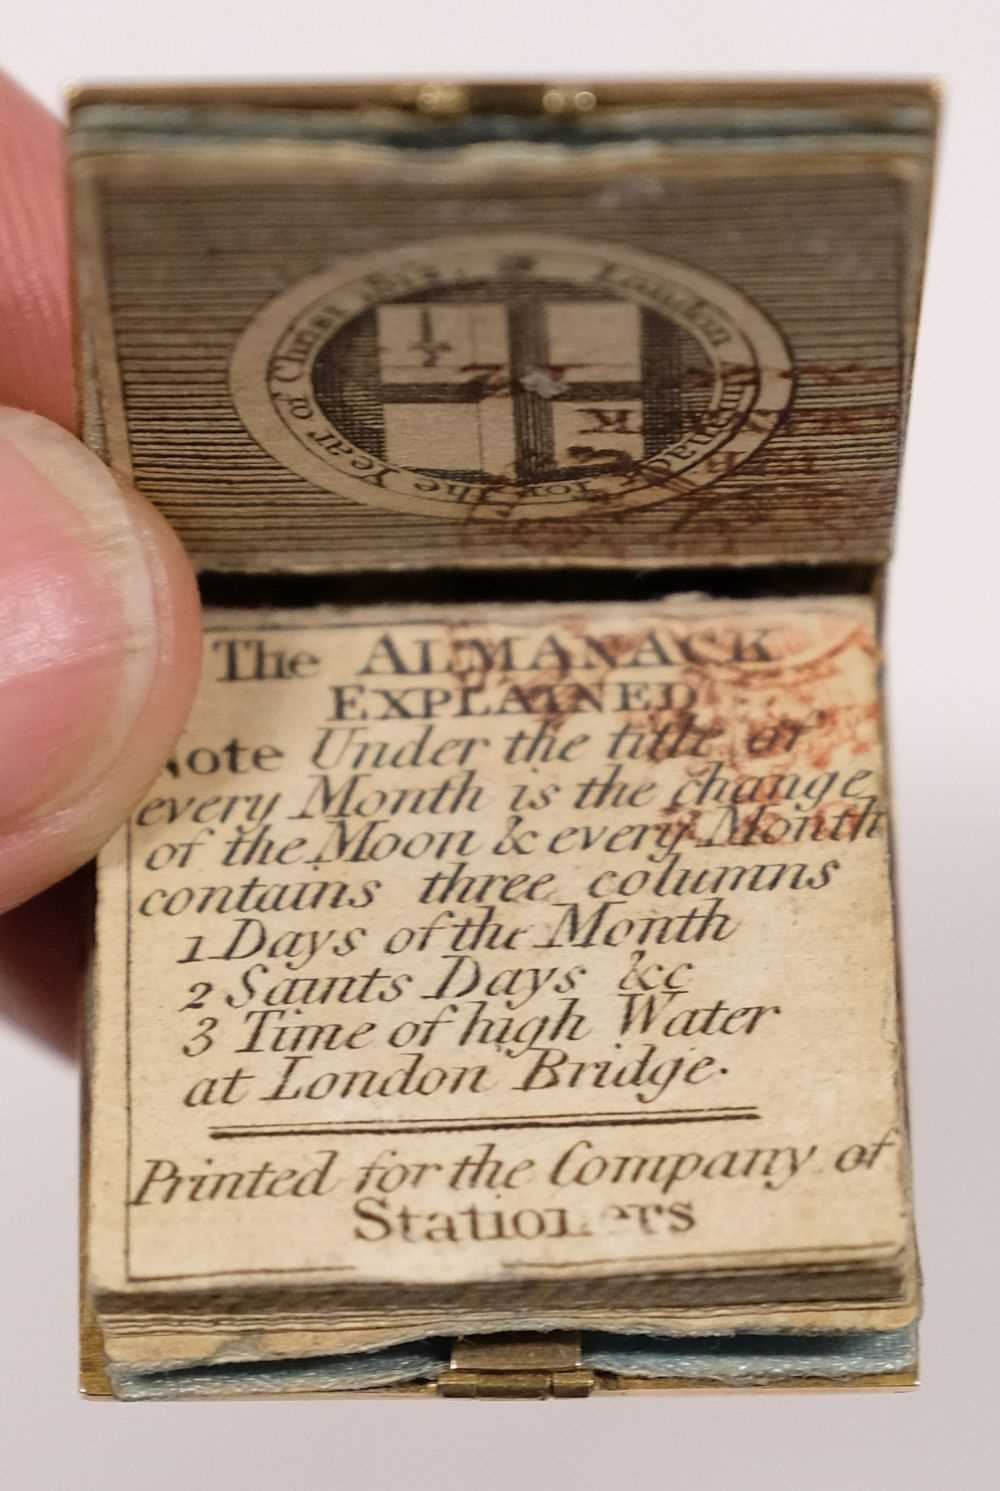 London Almanack for the Year of Christ
The ALMANACK
EXPLAINED
Note Under the title of
every Month is the change
of the Moon & every Month
contains three columns
1 Days of the Month
2 Saints Days &c
3 Time of high Water
at London Bridge.
Printed for the Company of
Stationers